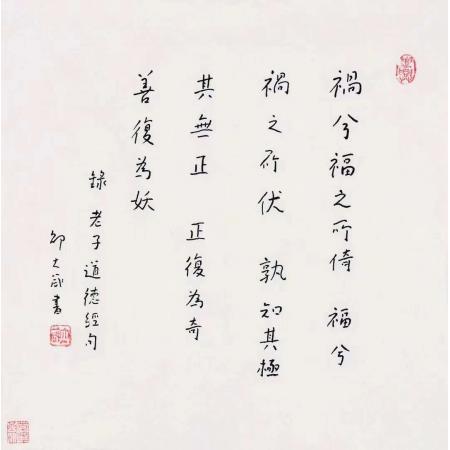 禍兮福之所倚 福兮
禍之所伏 孰知其極
其無正 正復為奇
善復為妖
錄 老子道德經句
邵大箴書